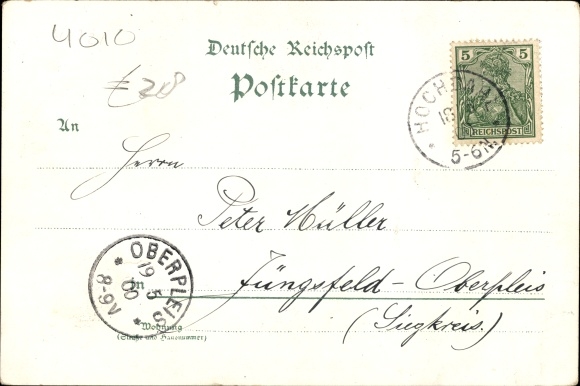 4010
Deutsche Reichspost
Postkarte
€28
5 5
REICHSPOST
HOCHDAHL
18
5-6N.
An
Herrn
Peter Müller
in Jüngsfeld-Oberpleis
(Siegkreis.)
OBERPLEIS
19 5
00
8-9V
Wohnung
(Straße und Hausnummer)